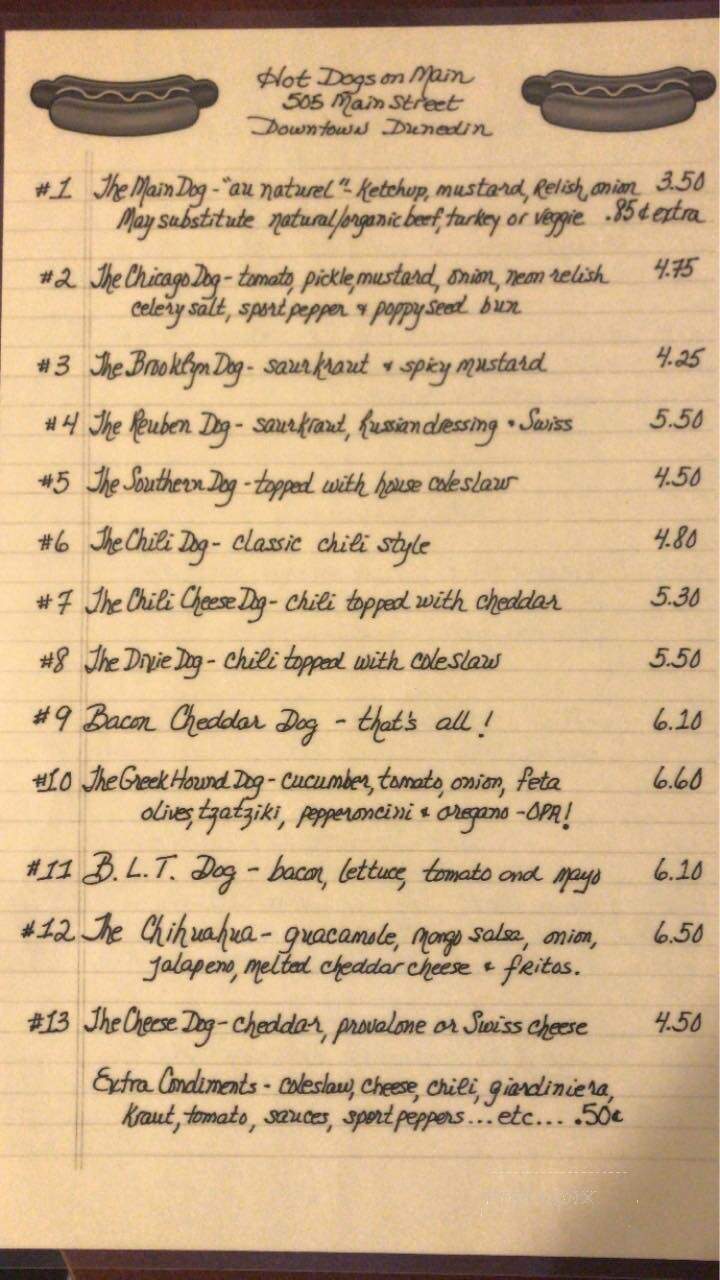 Hot Dogs on Main
505 Main Street
Downtown Dunedin
#1 The Main Dog - "au naturel" - Ketchup, mustard, Relish, onion 3.50
May substitute natural/organic beef, turkey or veggie .85¢ extra
#2 The Chicago Dog - tomato, pickle, mustard, onion, neon relish 4.75
celery salt, sport pepper & poppyseed bun
#3 The Brooklyn Dog - saurkraut & spicy mustard 4.25
#4 The Reuben Dog - saurkraut, Russian dressing & Swiss 5.50
#5 The Southern Dog - topped with house coleslaw 4.50
#6 The Chili Dog - classic chili style 4.80
#7 The Chili Cheese Dog - chili topped with cheddar 5.30
#8 The Dixie Dog - chili topped with coleslaw 5.50
#9 Bacon Cheddar Dog - that's all! 6.10
#10 The Greek Hound Dog - cucumber, tomato, onion, feta 6.60
olives, tzatziki, pepperoncini & oregano - OPA!
#11 B.L.T. Dog - bacon, lettuce, tomato and mayo 6.10
#12 The Chihuahua - guacamole, mango salsa, onion, 6.50
jalapeno, melted cheddar cheese & fritos.
#13 The Cheese Dog - cheddar, provalone or Swiss cheese 4.50
Extra Condiments - coleslaw, cheese, chili, giardiniera,
kraut, tomato, sauces, sport peppers...etc... .50¢